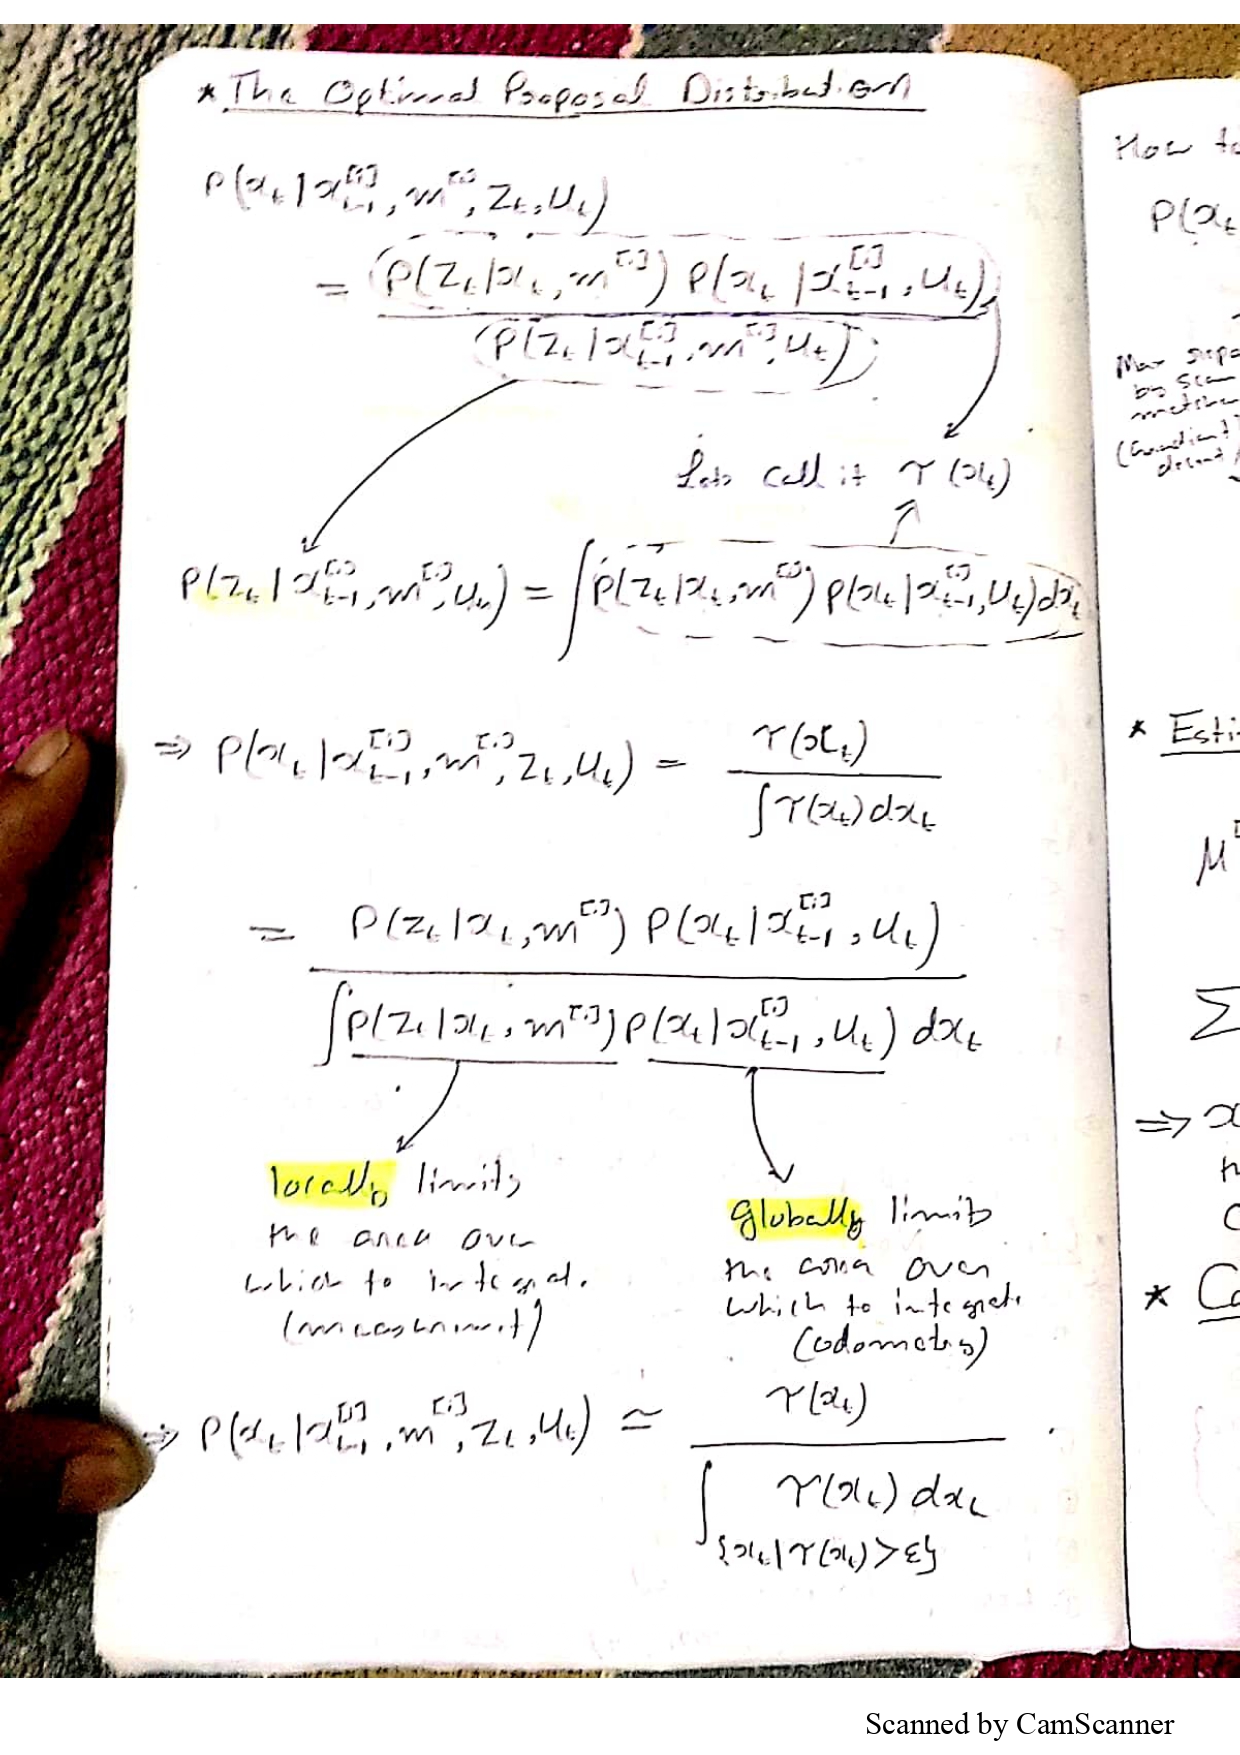 * The Optimal Proposal Distribution
P(x_t | x_{t-1}^{[i]}, m^{[i]}, z_t, u_t)
= P(z_t | x_t, m^{[i]}) P(x_t | x_{t-1}^{[i]}, u_t)
P(z_t | x_{t-1}^{[i]}, m^{[i]}, u_t)
Lets call it τ(x_t)
P(z_t | x_{t-1}^{[i]}, m^{[i]}, u_t) = ∫ P(z_t | x_t, m^{[i]}) P(x_t | x_{t-1}^{[i]}, u_t) dx_t
⇒ P(x_t | x_{t-1}^{[i]}, m^{[i]}, z_t, u_t) = τ(x_t)
∫ τ(x_t) dx_t
= P(z_t | x_t, m^{[i]}) P(x_t | x_{t-1}^{[i]}, u_t)
∫ P(z_t | x_t, m^{[i]}) P(x_t | x_{t-1}^{[i]}, u_t) dx_t
locally limits
the area over
which to integrat.
(measurment)
globally limits
the area over
which to integrat.
(odometry)
⇒ P(x_t | x_{t-1}^{[i]}, m^{[i]}, z_t, u_t) ≃ τ(x_t)
∫_{{x_t | τ(x_t) > ε}} τ(x_t) dx_t
How to
P(x_t
by scan
* Esti
μ^[
Σ
⇒ x
* Co
Scanned by CamScanner